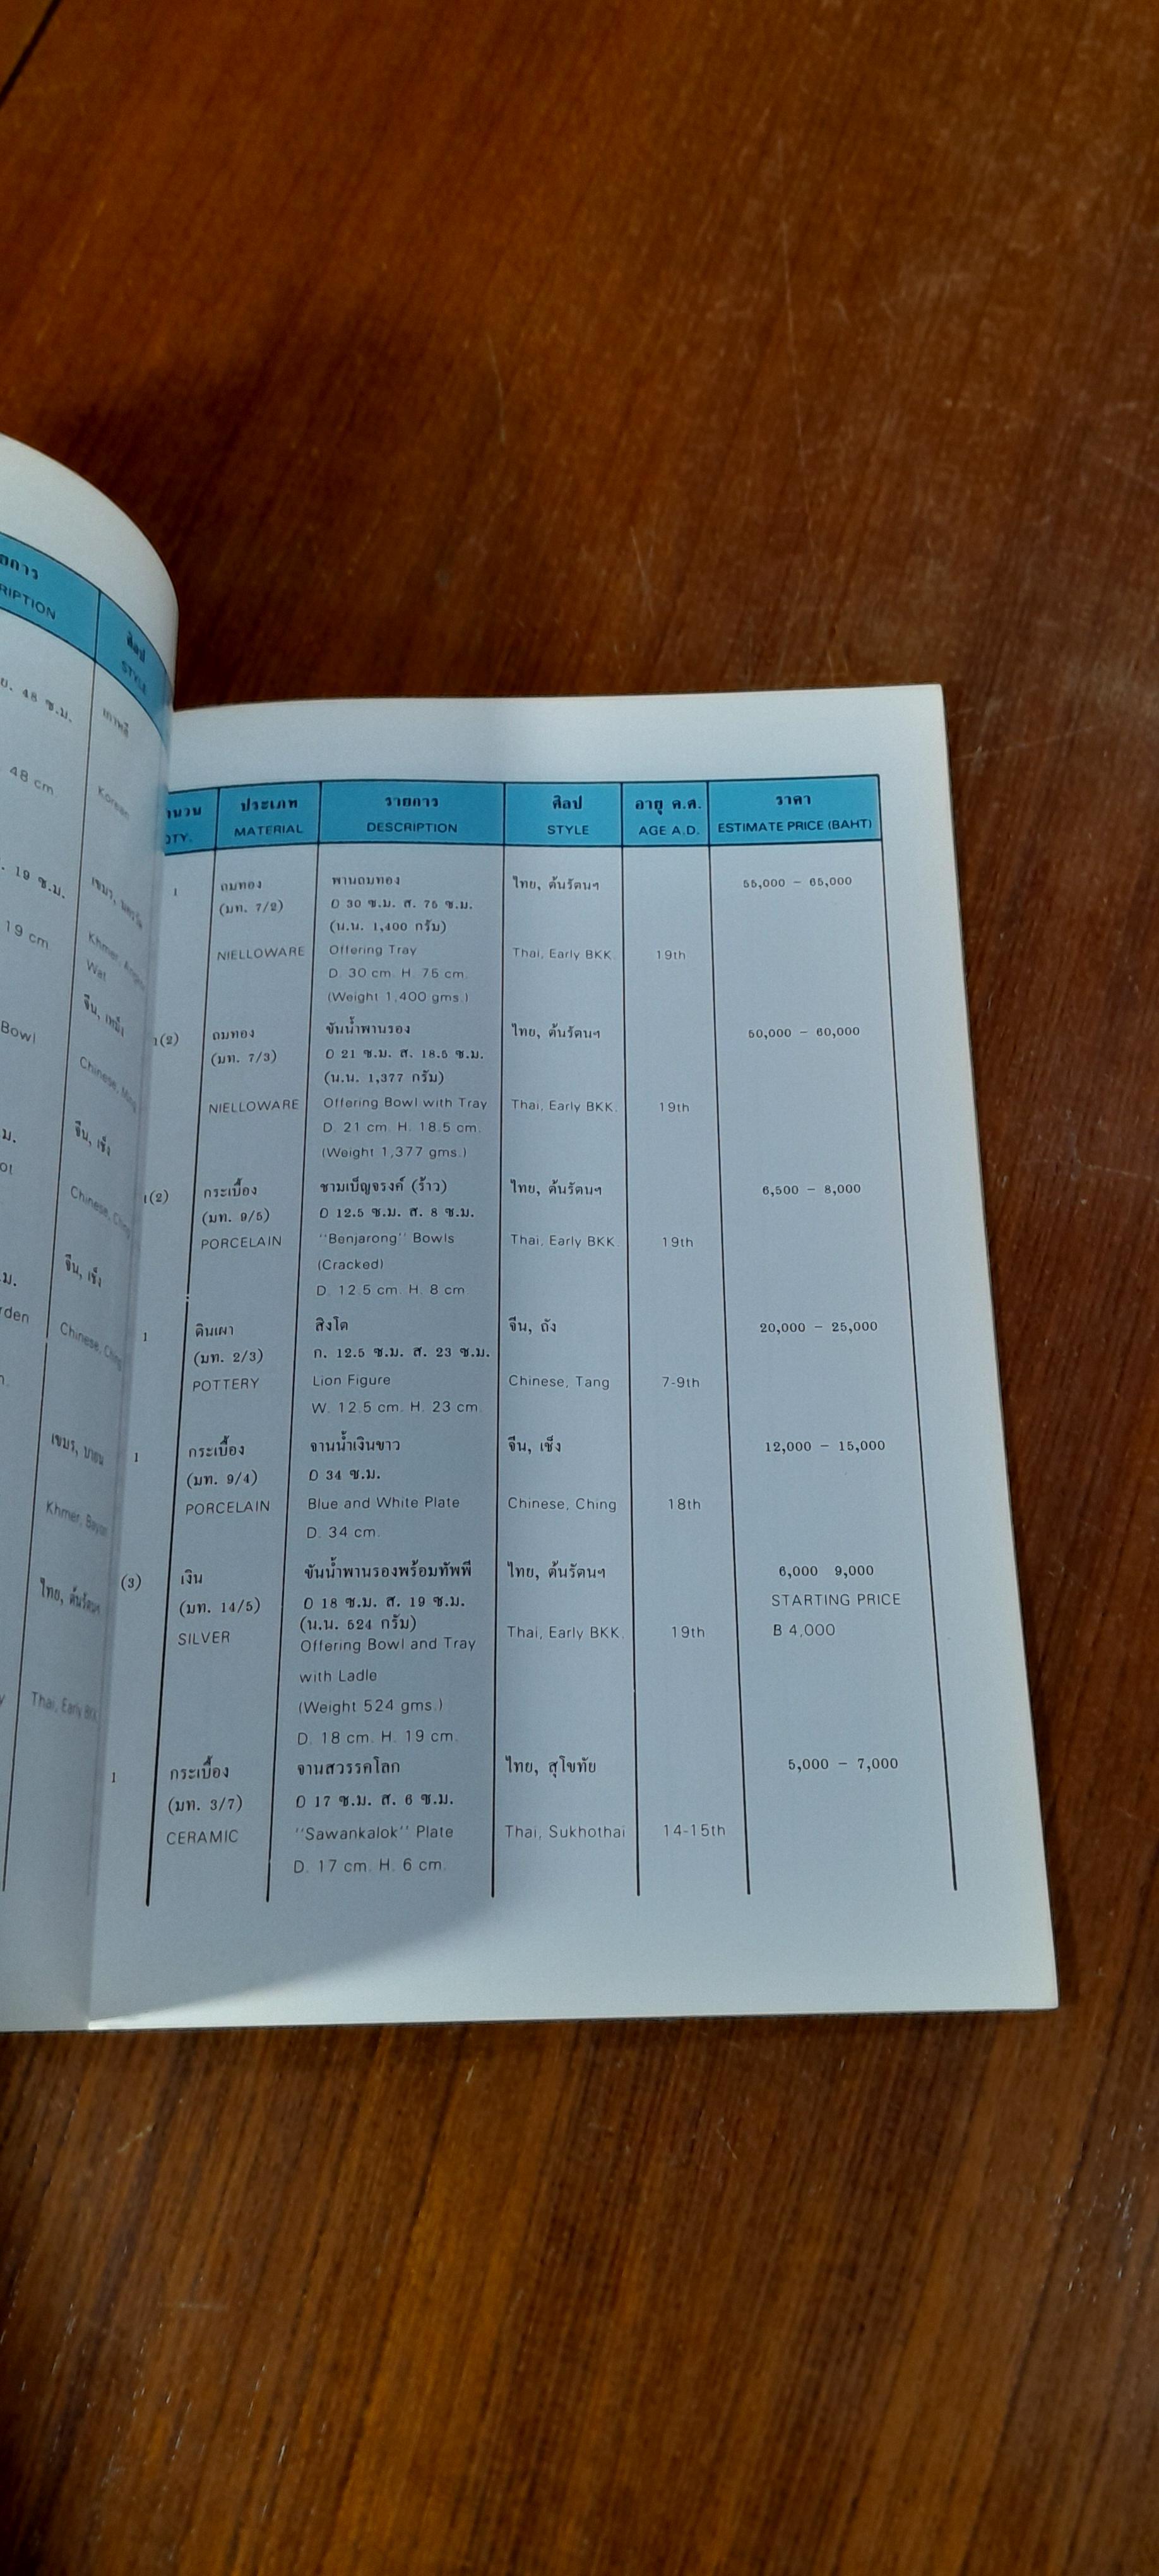 ยการ
RIPTION
ศิลป
STYLE
ย. 48 ซ.ม.
เกาหลี
48 cm.
Korean
. 19 ซ.ม.
เขมร,
19 cm.
Khmer,
Wat
จีน, เหม็ง
Bowl
Chinese, Ming
จีน, เช็ง
Chinese, Ching
จีน, เช็ง
rden
Chinese, Ching
เขมร, บายน
Khmer, Bayon
ไทย, ต้นรัตนฯ
Thai, Early BKK.
ำนวน
QTY.
ประเภท
MATERIAL
รายการ
DESCRIPTION
ศิลป
STYLE
อายุ ค.ศ.
AGE A.D.
ราคา
ESTIMATE PRICE (BAHT)
1
ถมทอง
(มท. 7/2)
NIELLOWARE
พานถมทอง
O 30 ซ.ม. ส. 75 ซ.ม.
(น.น. 1,400 กรัม)
Offering Tray
D. 30 cm. H. 75 cm.
(Weight 1,400 gms.)
ไทย, ต้นรัตนฯ
Thai, Early BKK.
19th
55,000 – 65,000
1(2)
ถมทอง
(มท. 7/3)
NIELLOWARE
ขันน้ำพานรอง
O 21 ซ.ม. ส. 18.5 ซ.ม.
(น.น. 1,377 กรัม)
Offering Bowl with Tray
D. 21 cm. H. 18.5 cm.
(Weight 1,377 gms.)
ไทย, ต้นรัตนฯ
Thai, Early BKK.
19th
50,000 – 60,000
1(2)
กระเบื้อง
(มท. 9/5)
PORCELAIN
ชามเบ็ญจรงค์ (ร้าว)
O 12.5 ซ.ม. ส. 8 ซ.ม.
"Benjarong" Bowls
(Cracked)
D. 12.5 cm. H. 8 cm
ไทย, ต้นรัตนฯ
Thai, Early BKK.
19th
6,500 – 8,000
1
ดินเผา
(มท. 2/3)
POTTERY
สิงโต
ก. 12.5 ซ.ม. ส. 23 ซ.ม.
Lion Figure
W. 12.5 cm. H. 23 cm.
จีน, ถัง
Chinese, Tang
7-9th
20,000 – 25,000
1
กระเบื้อง
(มท. 9/4)
PORCELAIN
จานน้ำเงินขาว
O 34 ซ.ม.
Blue and White Plate
D. 34 cm.
จีน, เช็ง
Chinese, Ching
18th
12,000 – 15,000
(3)
เงิน
(มท. 14/5)
SILVER
ขันน้ำพานรองพร้อมทัพพี
O 18 ซ.ม. ส. 19 ซ.ม.
(น.น. 524 กรัม)
Offering Bowl and Tray
with Ladle
(Weight 524 gms.)
D. 18 cm. H. 19 cm.
ไทย, ต้นรัตนฯ
Thai, Early BKK.
19th
6,000 9,000
STARTING PRICE
B 4,000
1
กระเบื้อง
(มท. 3/7)
CERAMIC
จานสวรรคโลก
O 17 ซ.ม. ส. 6 ซ.ม.
"Sawankalok" Plate
D. 17 cm. H. 6 cm.
ไทย, สุโขทัย
Thai, Sukhothai
14-15th
5,000 – 7,000